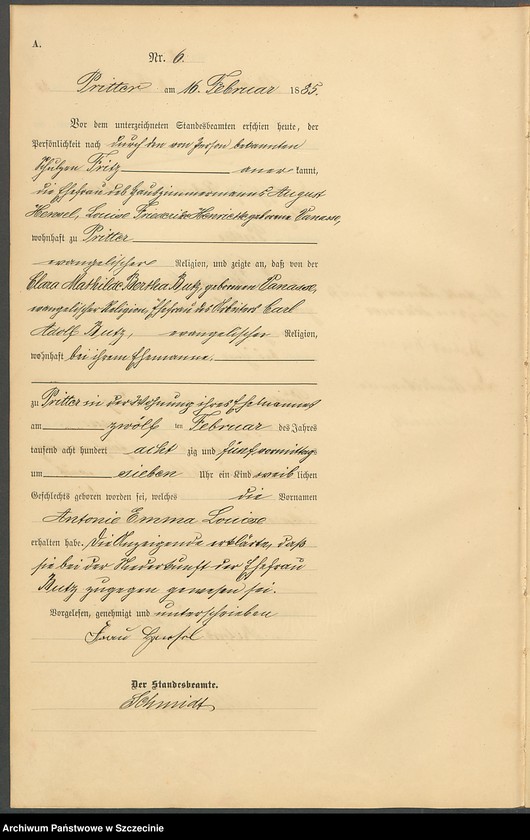 A.
Nr. 6.
Pritter am 16. Februar 1885.
Vor dem unterzeichneten Standesbeamten erschien heute, der
Persönlichkeit nach durch den von Person bekannten
Schulzen Fritz aner kannt,
die Ehefrau des Hauszimmermanns August
Hensel, Louise Friederike Henriette geborene Panasse,
wohnhaft zu Pritter
evangelischer Religion, und zeigte an, daß von der
Clara Mathilde Bertha Butz, geborenen Panasse,
evangelischer Religion, Ehefrau des Arbeiters Carl
Adolf Butz, evangelischer Religion,
wohnhaft bei ihrem Ehemanne,
zu Pritter in der Wohnung ihres Ehemannes
am zwölf ten Februar des Jahres
tausend acht hundert acht zig und fünf vormittags
um sieben Uhr ein Kind weib lichen
Geschlechts geboren worden sei, welches die Vornamen
Antonie Emma Louise
erhalten habe. Die Anzeigende erklärte, daß
sie bei der Niederkunft der Ehefrau
Butz zugegen gewesen sei.
Vorgelesen, genehmigt und unterschrieben
Frau Hensel
Der Standesbeamte.
Schmidt
Archiwum Państwowe w Szczecinie